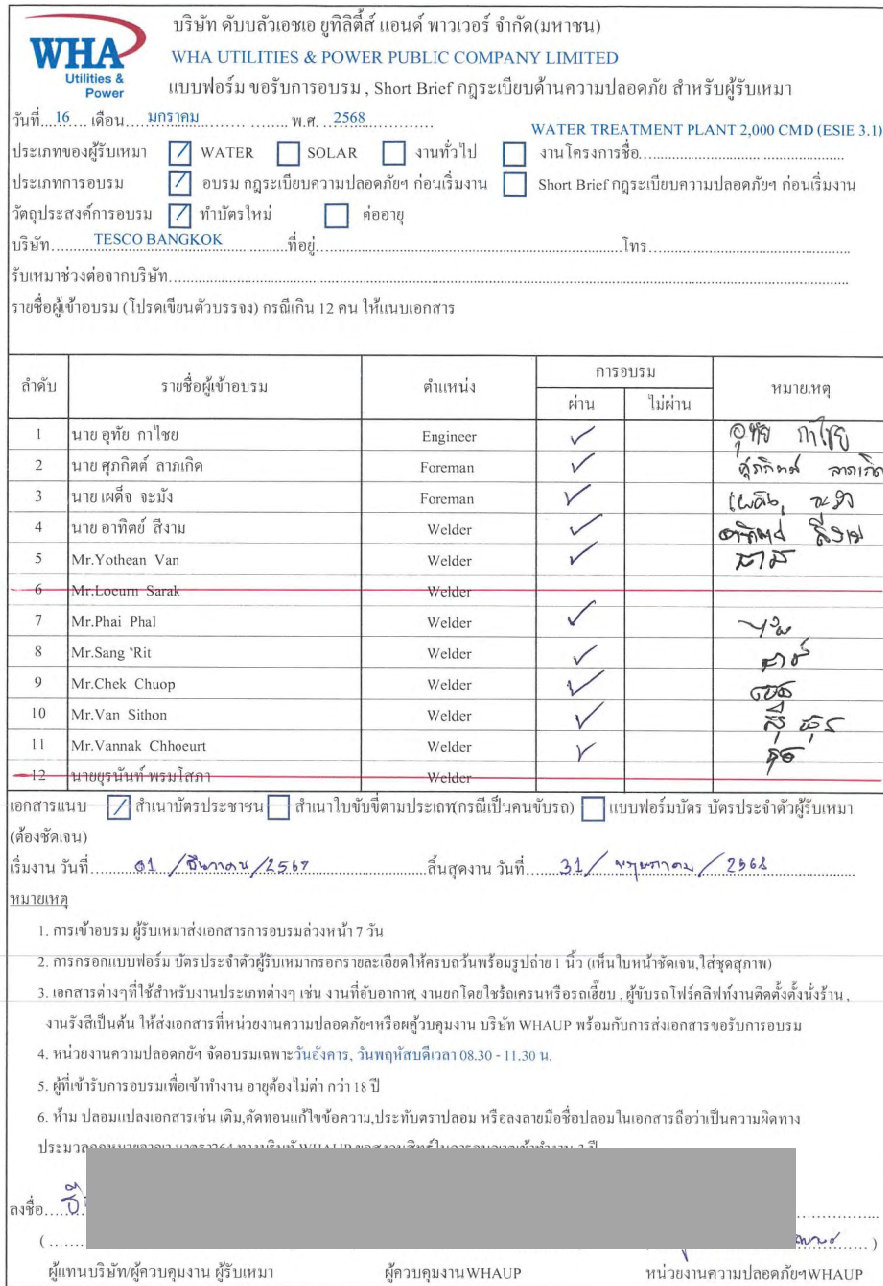 WHA
Utilities &
Power
บริษัท ดับบลิวเอชเอ ยูทิลิตี้ส์ แอนด์ พาวเวอร์ จำกัด(มหาชน)
WHA UTILITIES & POWER PUBLIC COMPANY LIMITED
แบบฟอร์ม ขอรับการอบรม , Short Brief กฎระเบียบด้านความปลอดภัย สำหรับผู้รับเหมา
วันที่....16.... เดือน....มกราคม.... พ.ศ. ....2568....
WATER TREATMENT PLANT 2,000 CMD (ESIE 3.1)
ประเภทของผู้รับเหมา ☑ WATER ☐ SOLAR ☐ งานทั่วไป ☐ งานโครงการชื่อ....
ประเภทการอบรม ☑ อบรม กฎระเบียบความปลอดภัยฯ ก่อนเริ่มงาน ☐ Short Brief กฎระเบียบความปลอดภัยฯ ก่อนเริ่มงาน
วัตถุประสงค์การอบรม ☑ ทำบัตรใหม่ ☐ ต่ออายุ
บริษัท....TESCO BANGKOK....ที่อยู่....โทร....
รับเหมาช่วงต่อจากบริษัท....
รายชื่อผู้เข้าอบรม (โปรดเขียนตัวบรรจง) กรณีเกิน 12 คน ให้แนบเอกสาร
ลำดับ รายชื่อผู้เข้าอบรม ตำแหน่ง การอบรม หมายเหตุ
ผ่าน ไม่ผ่าน
1 นาย อุทัย กาไชย Engineer ✓ อุทัย กาไชย
2 นาย ศุภกิตต์ ลาภเกิด Foreman ✓ ศุภกิตต์ ลาภเกิด
3 นาย เผด็จ จะมัง Foreman ✓ เผด็จ จะมัง
4 นาย อาทิตย์ สีงาม Welder ✓ อาทิตย์ สีงาม
5 Mr.Yothean Van Welder ✓
6 Mr.Loeum Sarak Welder
7 Mr.Phai Phal Welder ✓
8 Mr.Sang Rit Welder ✓
9 Mr.Chek Chuop Welder ✓
10 Mr.Van Sithon Welder ✓
11 Mr.Vannak Chhoeurt Welder ✓
12 นายยุรนันท์ พรมโสภา Welder
เอกสารแนบ ☑ สำเนาบัตรประชาชน ☐ สำเนาใบขับขี่ตามประเภท(กรณีเป็นคนขับรถ) ☐ แบบฟอร์มบัตร บัตรประจำตัวผู้รับเหมา
(ต้องชัดเจน)
เริ่มงาน วันที่....01 / ธันวาคม / 2567....สิ้นสุดงาน วันที่....31 / พฤษภาคม / 2568....
หมายเหตุ
1. การเข้าอบรม ผู้รับเหมาส่งเอกสารการอบรมล่วงหน้า 7 วัน
2. การกรอกแบบฟอร์ม บัตรประจำตัวผู้รับเหมากรอกรายละเอียดให้ครบถ้วนพร้อมรูปถ่าย 1 นิ้ว (เห็นใบหน้าชัดเจน,ใส่ชุดสุภาพ)
3. เอกสารต่างๆที่ใช้สำหรับงานประเภทต่างๆ เช่น งานที่อับอากาศ, งานยกโดยใช้รถเครนหรือรถเฮี๊ยบ , ผู้ขับรถโฟร์คลิฟท์งานติดตั้งตั้งนั่งร้าน ,
งานรังสีเป็นต้น ให้ส่งเอกสารที่หน่วยงานความปลอดภัยฯหรือผคู้วบคุมงาน บริษัท WHAUP พร้อมกับการส่งเอกสารขอรับการอบรม
4. หน่วยงานความปลอดภัยฯ จัดอบรมเฉพาะวันอังคาร, วันพฤหัสบดีเวลา 08.30 - 11.30 น.
5. ผู้ที่เข้ารับการอบรมเพื่อเข้าทำงาน อายุต้องไม่ต่ำ กว่า 18 ปี
6. ห้าม ปลอมแปลงเอกสารเช่น เติม,ตัดทอนแก้ไขข้อความ,ประทับตราปลอม หรือลงลายมือชื่อปลอม ในเอกสารถือว่าเป็นความผิดทาง
ลงชื่อ....
ผู้แทนบริษัท/ผู้ควบคุมงาน ผู้รับเหมา ผู้ควบคุมงานWHAUP หน่วยงานความปลอดภัยฯWHAUP